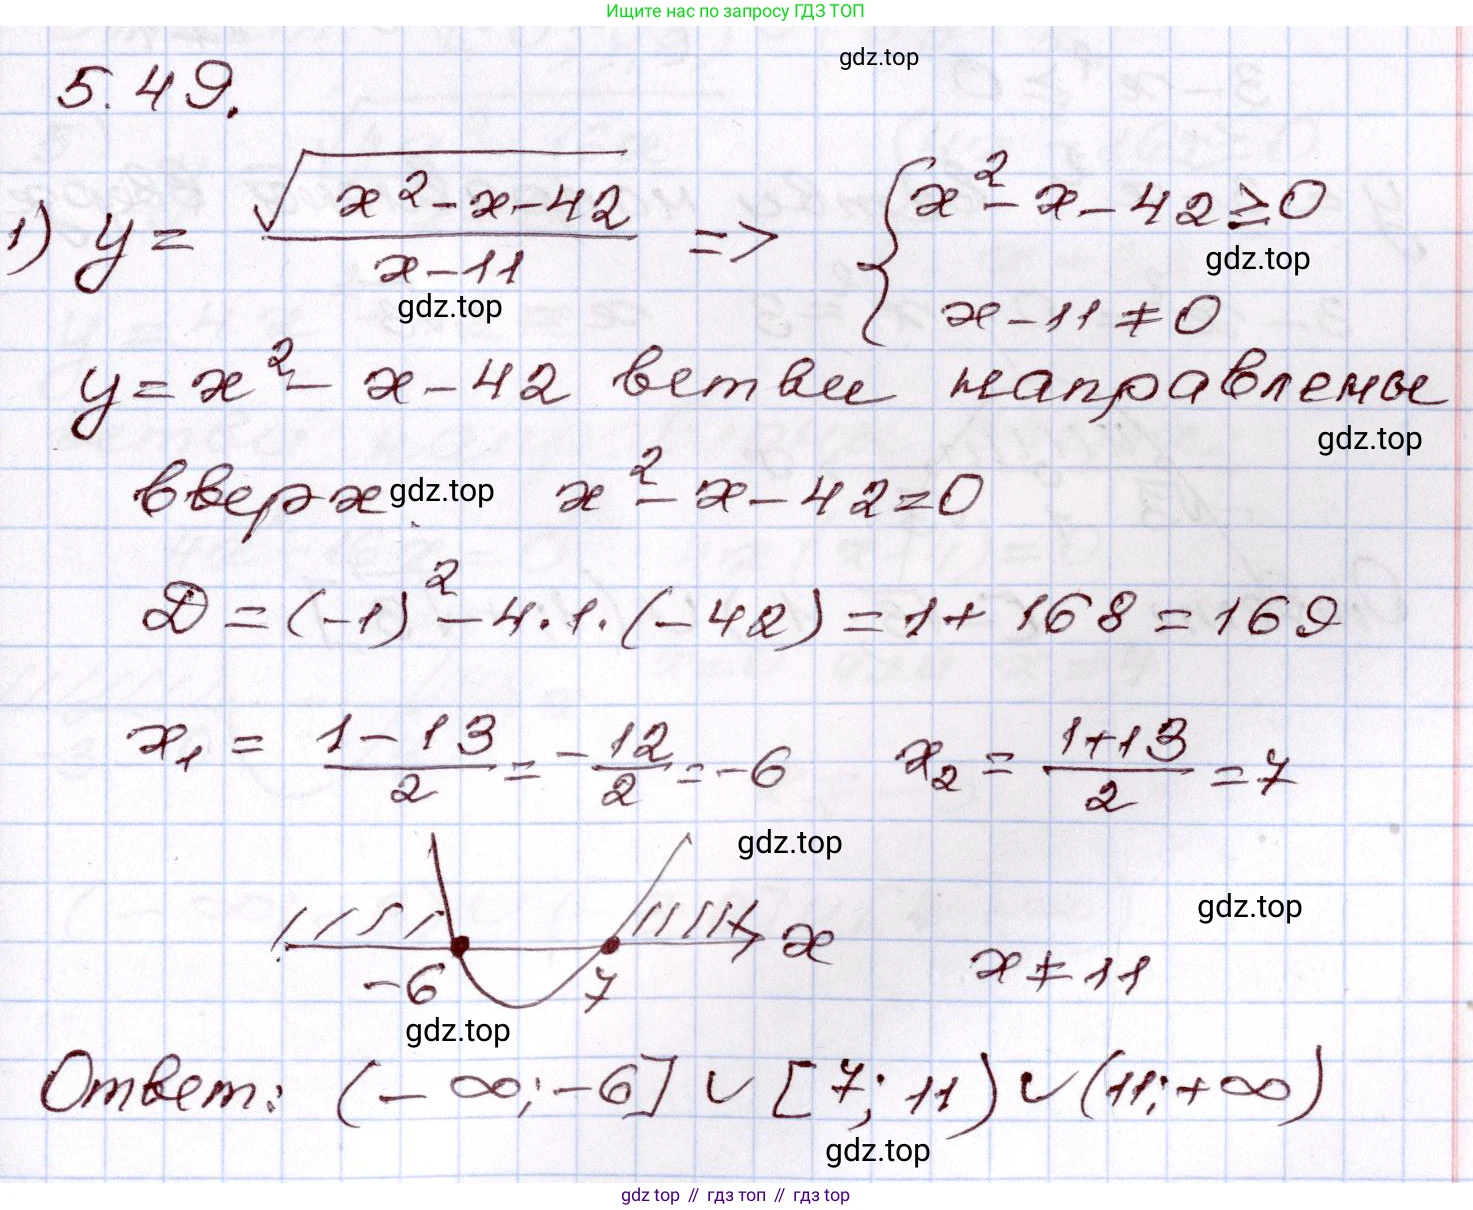 Ищите нас по запросу ГДЗ ТОП
gdz.top
5.49.
1) y = √(x² - x - 42) / (x - 11) => { x² - x - 42 ≥ 0
gdz.top
x - 11 ≠ 0
gdz.top
y = x² - x - 42 ветви направлены
gdz.top
вверх gdz.top x² - x - 42 = 0
D = (-1)² - 4·1·(-42) = 1 + 168 = 169
x₁ = (1 - 13)/2 = -12/2 = -6 x₂ = (1+13)/2 = 7
gdz.top
gdz.top
x
-6 7 x ≠ 11
gdz.top
Ответ: (-∞; -6] ∪ [7; 11) ∪ (11; +∞)
gdz.top
gdz top // гдз топ // гдз top